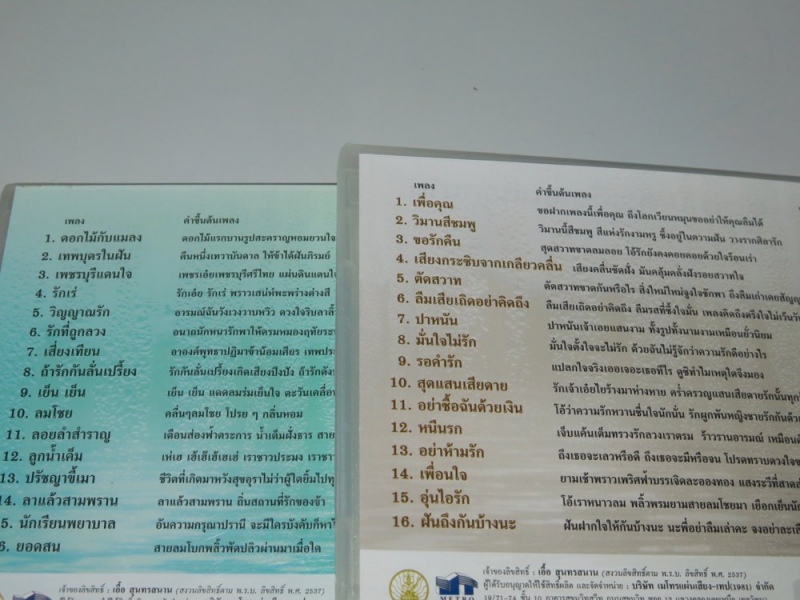 เพลง คำขึ้นต้นเพลง
1. ดอกไม้กับแมลง ดอกไม้แรกบานรูปสะคราญหอมยวนใจ
2. เทพบุตรในฝัน คืนหนึ่งเทวาบันดาล ให้ข้าได้ฝันภิรมย์
3. เพชรบุรีแดนใจ เพชรเอ๋ยเพชรบุรีศรีไทย แผ่นดินแดนใน
4. รักเร่ รักเอ๋ย รักเร่ พราวเสน่ห์พะพร่างต่างสี
5. วิญญาณรัก อารมณ์ฉันวังเวงวาบหวิว ดวงใจริบลาลิ
6. รักที่ถูกลวง อนาถนักหนารักพาให้ตรมหมองฤทัยระ
7. เสี่ยงเทียน อาองค์พุทธาปฏิมาข้าน้อมเศียร เทพประ
8. ถ้ารักกันลั่นเปรี้ยง รักกันลั่นเปรี้ยงเกิดเสียงปึงปัง ถ้ารักดัง
9. เย็น เย็น เย็น เย็น แดดลมร่มเย็นใจ ตะวันเคลื่อ
10. ลมโชย คลื่นๆลมโชย โปรย ๆ กลิ่นหอม
11. ลอยลำสำราญ เดือนส่องฟ้าตระการ น้ำเต็มฝั่งธาร สาย
12. ลูกน้ำเค็ม เห่เฮ เฮ้เฮ้เฮ้เฮเฮ่ เราชาวประมง เราชา
13. ปรัชญาขี้เมา ชีวิตที่เกิดมาหวังสุขอุราไม่ว่าผู้ใดยิ้มไปทุ
14. ลาแล้วสามพราน ลาแล้วสามพราน ถิ่นสถานที่รักของข้า
5. นักเรียนพยาบาล อันความกรุณาปรานี จะมีใครบังคับก็หา
6. ยอดสน สายลมโบกพลิ้วพัดปลิวผ่านมาเมื่อใด
เจ้าของลิขสิทธิ์ : เอื้อ สุนทรสนาน (สงวนลิขสิทธิ์ตาม พ.ร.บ. ลิขสิทธิ์ พ.ศ. 2537)
เพลง คำขึ้นต้นเพลง
1. เพื่อคุณ ขอฝากเพลงนี้เพื่อคุณ ถึงโลกเวียนหมุนขออย่าให้คุณลืมได้
2. วิมานสีชมพู วิมานนี้สีชมพู สีแห่งรักงามหรู ซึ้งอยู่ในความฝัน วางรากศิลารัก
3. ขอรักคืน สุดสวาทขาดลมลอย โอ้รักยังคงคอยคอยด้วยใจร้อนเร่า
4. เสียงกระซิบจากเกลียวคลื่น เสียงคลื่นซัดฝั่ง มันคลุ้มคลั่งฝังรอยสวาทใจ
5. ตัดสวาท ตัดสวาทขาดกันหรือไร สิ่งใหม่ใหม่จูงใจชักพา ถึงลืมเก่าเคยสัญญ
6. ลืมเสียเถิดอย่าคิดถึง ลืมเสียเถิดอย่าคิดถึง ลืมรสที่ซึ้งใจมั่น เพลงคิดถึงตรึงใจไม่เว้นวัน
7. ปาหนัน ปาหนันเจ้าเอยแสนงาม ทั้งรูปทั้งนามงามเหมือนยั่วนิยม
8. มั่นใจไม่รัก มั่นใจตั้งใจจะไม่รัก ด้วยฉันไม่รู้จักว่าความรักดีอย่างไร
9. รอคำรัก แปลกใจจริงเออเจอะเธอทีไร ดูซิทำไมเหตุใดจึงมอง
10. สุดแสนเสียดาย รักเจ้าเอ๋ยไยร้างมาห่างหาย คร่ำครวญแสนเสียดายรักนั้นทุก
11. อย่าซื้อฉันด้วยเงิน โอ้ว่าความรักหวานชื่นใจนักนั่น รักผูกพันหญิงชายรักกันด้ว
12. หนีรัก เจ็บแค้นเต็มทรวงรักลวงเราตรม ร้าวรานอารมณ์ เหมือน
13. อย่าห้ามรัก ถึงเธอจะเลวหรือดี ถึงเธอจะมีหรือจน โปรดทราบดวงใจ
14. เพื่อนใจ ยามเช้าพราวเพริศฟ้าบรรเจิดละอองทอง แสงระวีที่สาด
15. อุ่นไอรัก โอ้เราหนาวลม พลิ้วพรมยามสายลมโชยมา เยือกเย็น
16. ฝันถึงกันบ้างนะ ฝันฝากใจให้กันบ้างนะ นะพี่อย่าลืมเล่าคะ จงอย่าละเ
เจ้าของลิขสิทธิ์ : เอื้อ สุนทรสนาน (สงวนลิขสิทธิ์ตาม พ.ร.บ. ลิขสิทธิ์ พ.ศ. 2537)
ผู้ได้รับอนุญาตให้ใช้สิทธิ์ผลิต และจัดจำหน่าย : บริษัท เมโทรแผ่นเสียง-เทป(1981) จำกัด
METRO 19/71-74 ชั้น 10